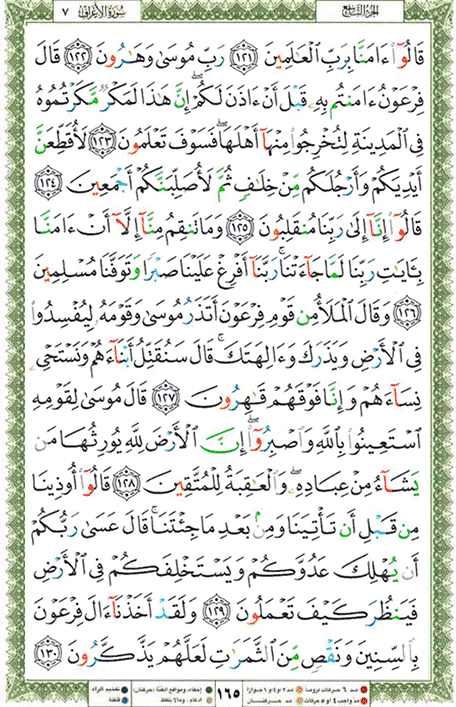 سورة الأعراف ٧
الجزء التاسع
قَالُوٓا۟ ءَامَنَّا بِرَبِّ ٱلْعَٰلَمِينَ ١٢١ رَبِّ مُوسَىٰ وَهَٰرُونَ ١٢٢ قَالَ
فِرْعَوْنُ ءَامَنتُم بِهِۦ قَبْلَ أَنْ ءَاذَنَ لَكُمْ ۖ إِنَّ هَٰذَا لَمَكْرٌ مَّكَرْتُمُوهُ
فِى ٱلْمَدِينَةِ لِتُخْرِجُوا۟ مِنْهَآ أَهْلَهَا ۖ فَسَوْفَ تَعْلَمُونَ ١٢٣ لَأُقَطِّعَنَّ
أَيْدِيَكُمْ وَأَرْجُلَكُم مِّنْ خِلَٰفٍ ثُمَّ لَأُصَلِّبَنَّكُمْ أَجْمَعِينَ ١٢٤
قَالُوٓا۟ إِنَّآ إِلَىٰ رَبِّنَا مُنقَلِبُونَ ١٢٥ وَمَا تَنقِمُ مِنَّآ إِلَّآ أَنْ ءَامَنَّا
بِـَٔايَٰتِ رَبِّنَا لَمَّا جَآءَتْنَا ۚ رَبَّنَآ أَفْرِغْ عَلَيْنَا صَبْرًا وَتَوَفَّنَا مُسْلِمِينَ
١٢٦ وَقَالَ ٱلْمَلَأُ مِن قَوْمِ فِرْعَوْنَ أَتَذَرُ مُوسَىٰ وَقَوْمَهُۥ لِيُفْسِدُوا۟
فِى ٱلْأَرْضِ وَيَذَرَكَ وَءَالِهَتَكَ ۚ قَالَ سَنُقَتِّلُ أَبْنَآءَهُمْ وَنَسْتَحْىِۦ
نِسَآءَهُمْ وَإِنَّا فَوْقَهُمْ قَٰهِرُونَ ١٢٧ قَالَ مُوسَىٰ لِقَوْمِهِ
ٱسْتَعِينُوا۟ بِٱللَّهِ وَٱصْبِرُوٓا۟ ۖ إِنَّ ٱلْأَرْضَ لِلَّهِ يُورِثُهَا مَن
يَشَآءُ مِنْ عِبَادِهِۦ ۖ وَٱلْعَٰقِبَةُ لِلْمُتَّقِينَ ١٢٨ قَالُوٓا۟ أُوذِينَا
مِن قَبْلِ أَن تَأْتِيَنَا وَمِنۢ بَعْدِ مَا جِئْتَنَا ۚ قَالَ عَسَىٰ رَبُّكُمْ
أَن يُهْلِكَ عَدُوَّكُمْ وَيَسْتَخْلِفَكُمْ فِى ٱلْأَرْضِ
فَيَنظُرَ كَيْفَ تَعْمَلُونَ ١٢٩ وَلَقَدْ أَخَذْنَآ ءَالَ فِرْعَوْنَ
بِٱلسِّنِينَ وَنَقْصٍ مِّنَ ٱلثَّمَرَٰتِ لَعَلَّهُمْ يَذَّكَّرُونَ ١٣٠
مد ٦ حركات لزوماً مد ٢ او ٤ او ٦ جوازاً
مد واجب ٤ او ٥ حركات مد حركتان
١٦٥
إخفاء، ومواقع الغنة (حركتان) تفخيم الراء
ادغام، وما لا يلفظ قلقلة